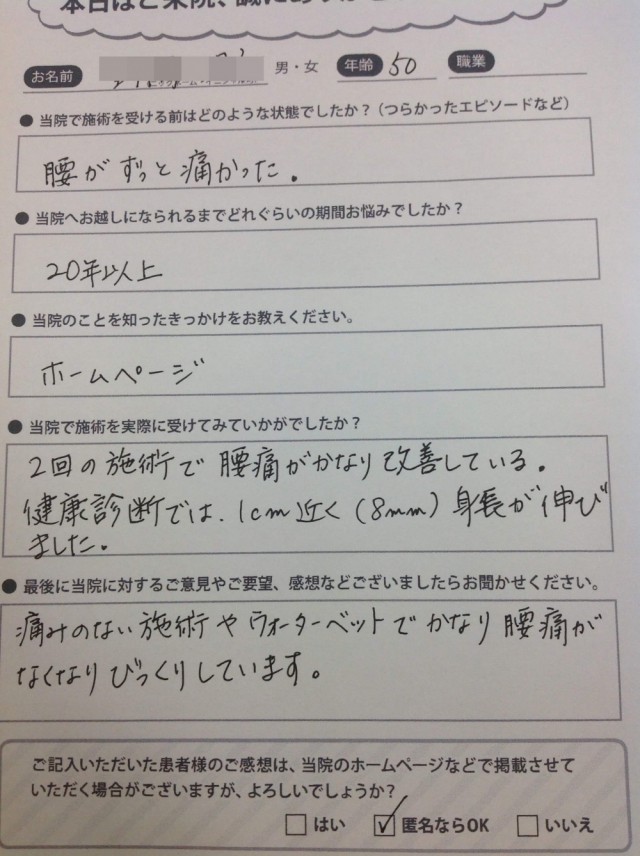 お名前 男・女 年齢 50 職業
● 当院で施術を受ける前はどのような状態でしたか？（つらかったエピソードなど）
腰がずっと痛かった.
● 当院へお越しになられるまでどれぐらいの期間お悩みでしたか？
20年以上
● 当院のことを知ったきっかけをお教えください。
ホームページ
● 当院で施術を実際に受けてみていかがでしたか？
2回の施術で腰痛がかなり改善している.
健康診断では、1cm近く(8mm)身長が伸び
ました.
● 最後に当院に対するご意見やご要望、感想などございましたらお聞かせください。
痛みのない施術やウォーターベットでかなり腰痛が
なくなりびっくりしています。
ご記入いただいた患者様のご感想は、当院のホームページなどで掲載させて
いただく場合がございますが、よろしいでしょうか？
□ はい ☑ 匿名ならOK □ いいえ